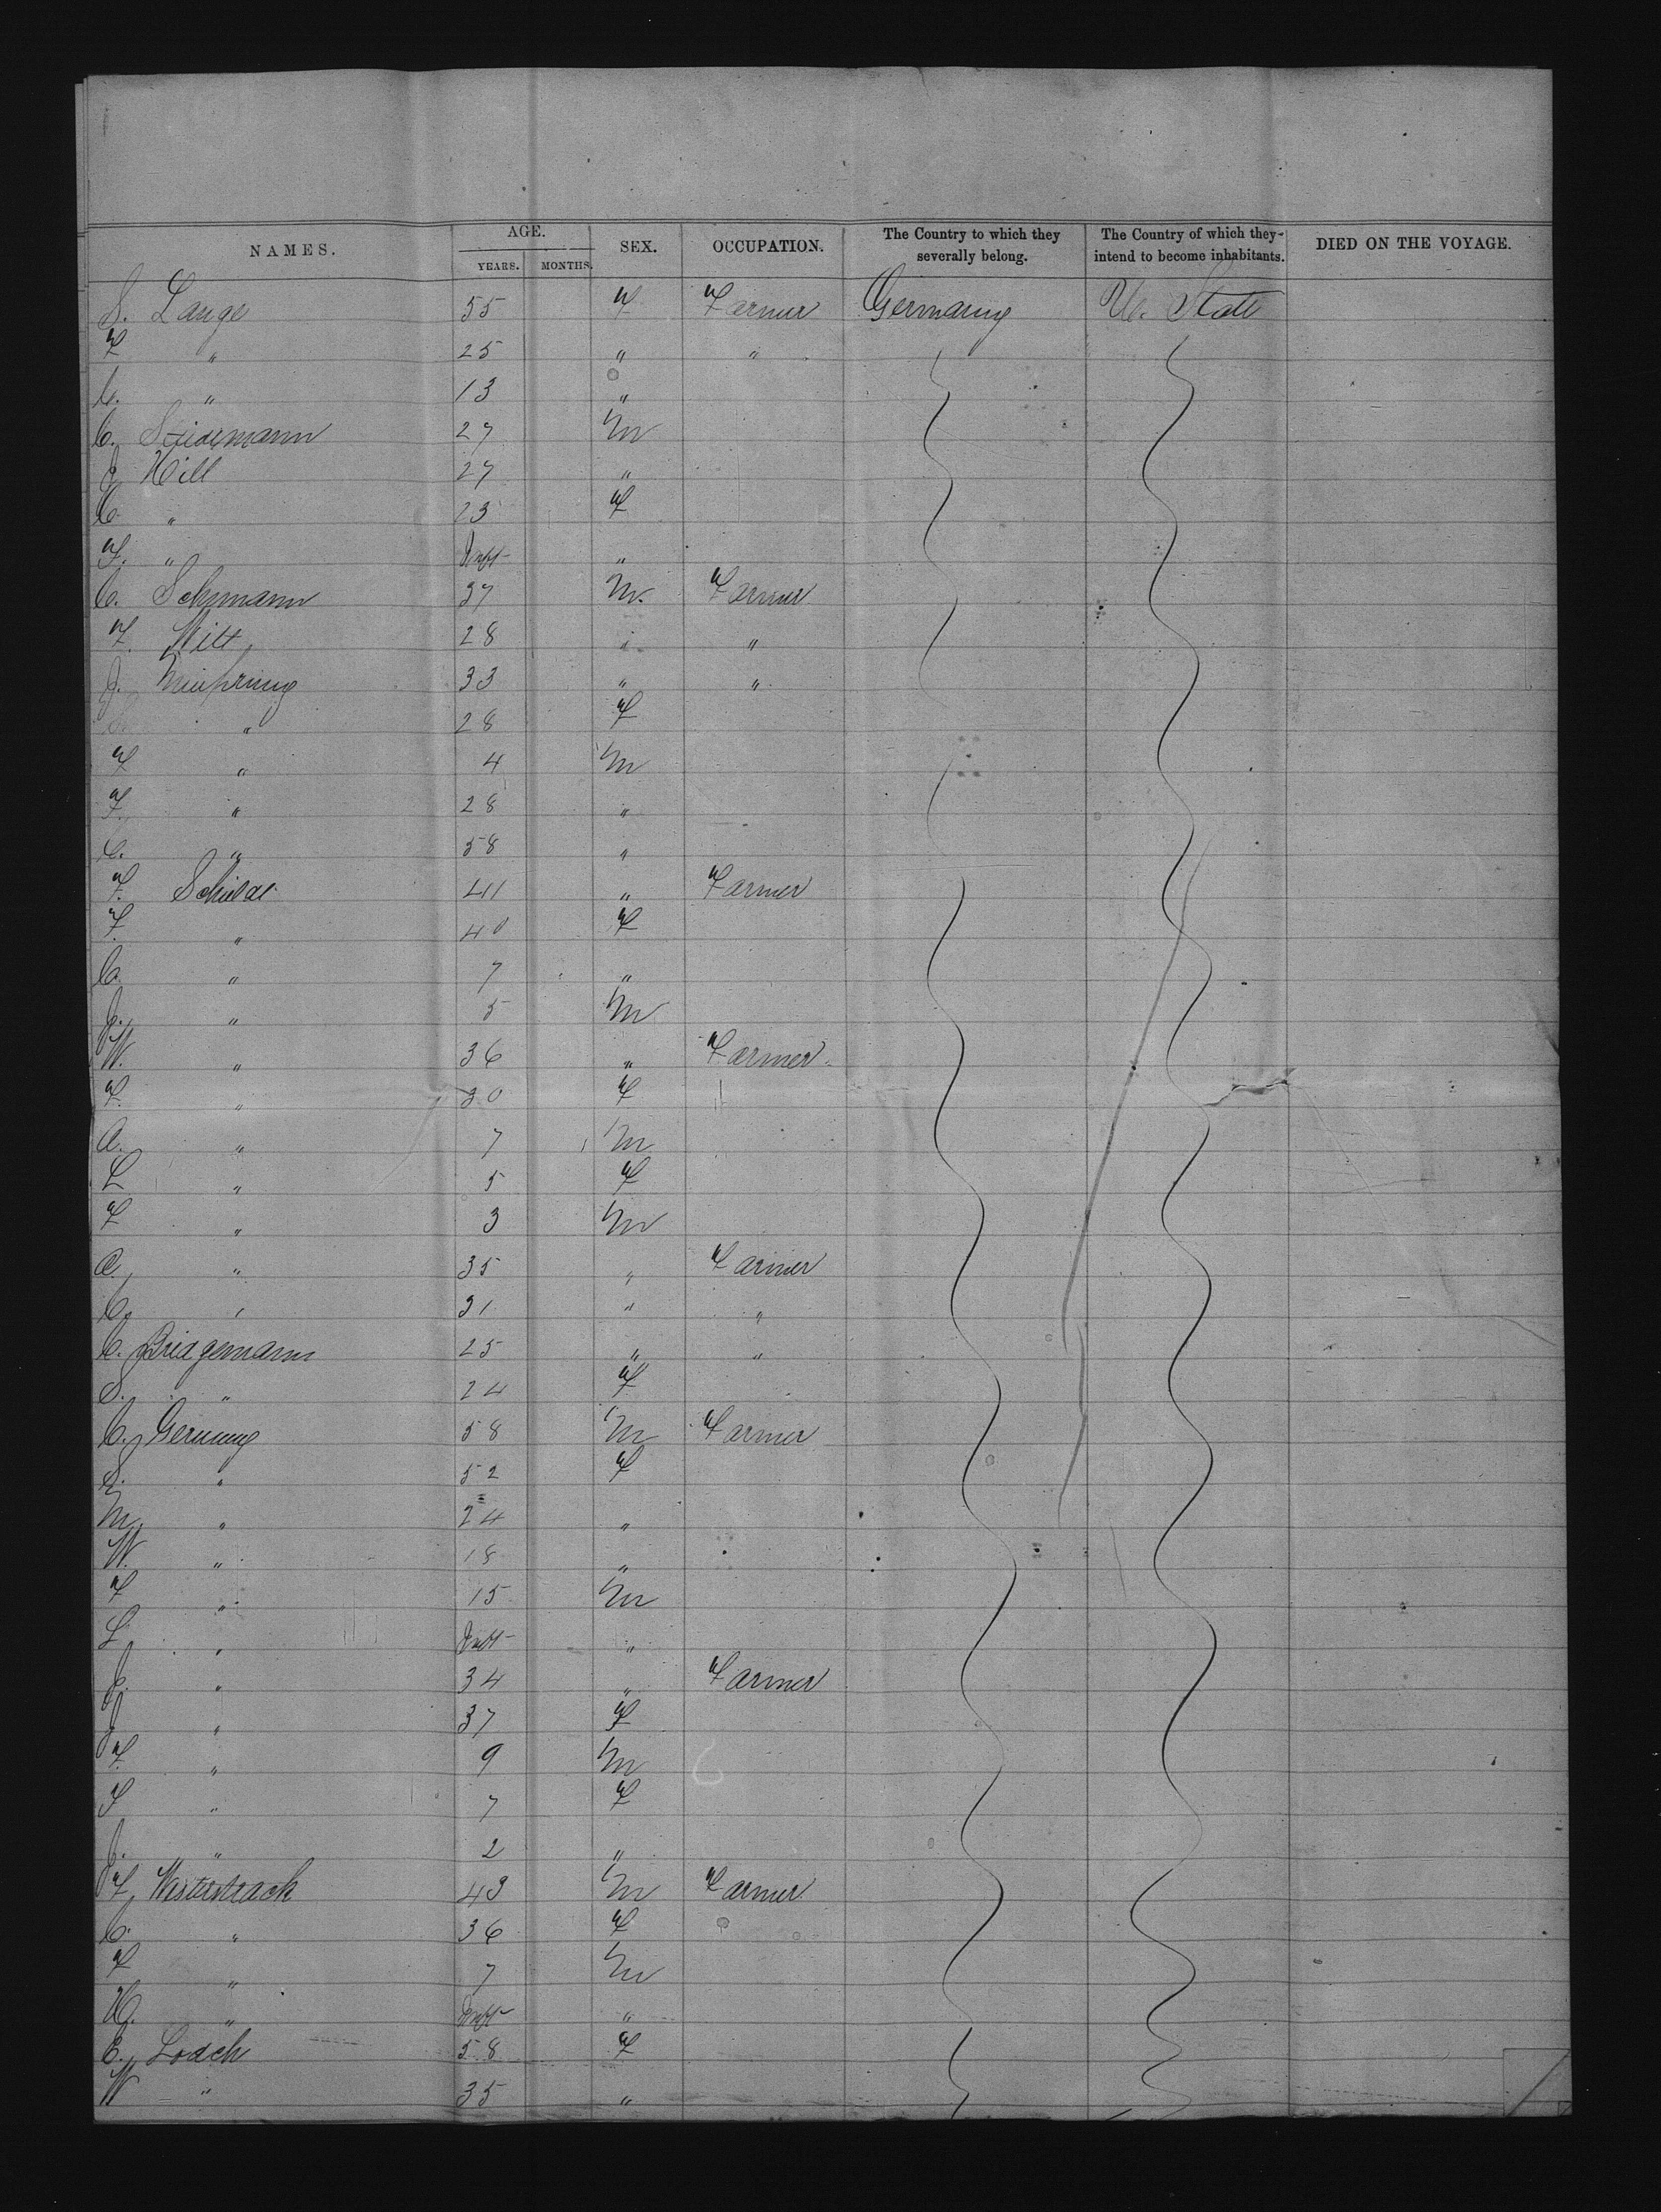 NAMES. AGE. YEARS. MONTHS. SEX. OCCUPATION. The Country to which they severally belong. The Country of which they intend to become inhabitants. DIED ON THE VOYAGE.
S. Lange 55 F Farmer Germany U. State
F " 25 " "
C. " 13 "
C. Seidemann 27 M
J Hill 27 "
C. " 23 F
F. " Inft "
C. Schumann 37 M. Farmer
F. Witt 28 "
J. 33 " "
" 28 F
F " 4 M
F. " 28 "
C. " 58 "
F. 41 " Farmer
F. " 40 F
C. " 7 "
J. " 5 M
W. " 36 " Farmer
F. " 30 F
A. " 7 M
L " 5 F
F " 3 M
A. " 35 " Farmer
C. " 31 " "
C. Bridgemann 25 " "
S. " 24 F
C. 58 M Farmer
S. " 52 F
M. " 24 "
W. " 18 "
F " 15 M
L " Inft "
J. " 34 " Farmer
J " 37 F
F. " 9 M
S " 7 F
J. " 2 "
F. 43 M Farmer
C. " 36 F
F " 7 M
H. " Inft "
C. Loach 58 F
W " 35 "